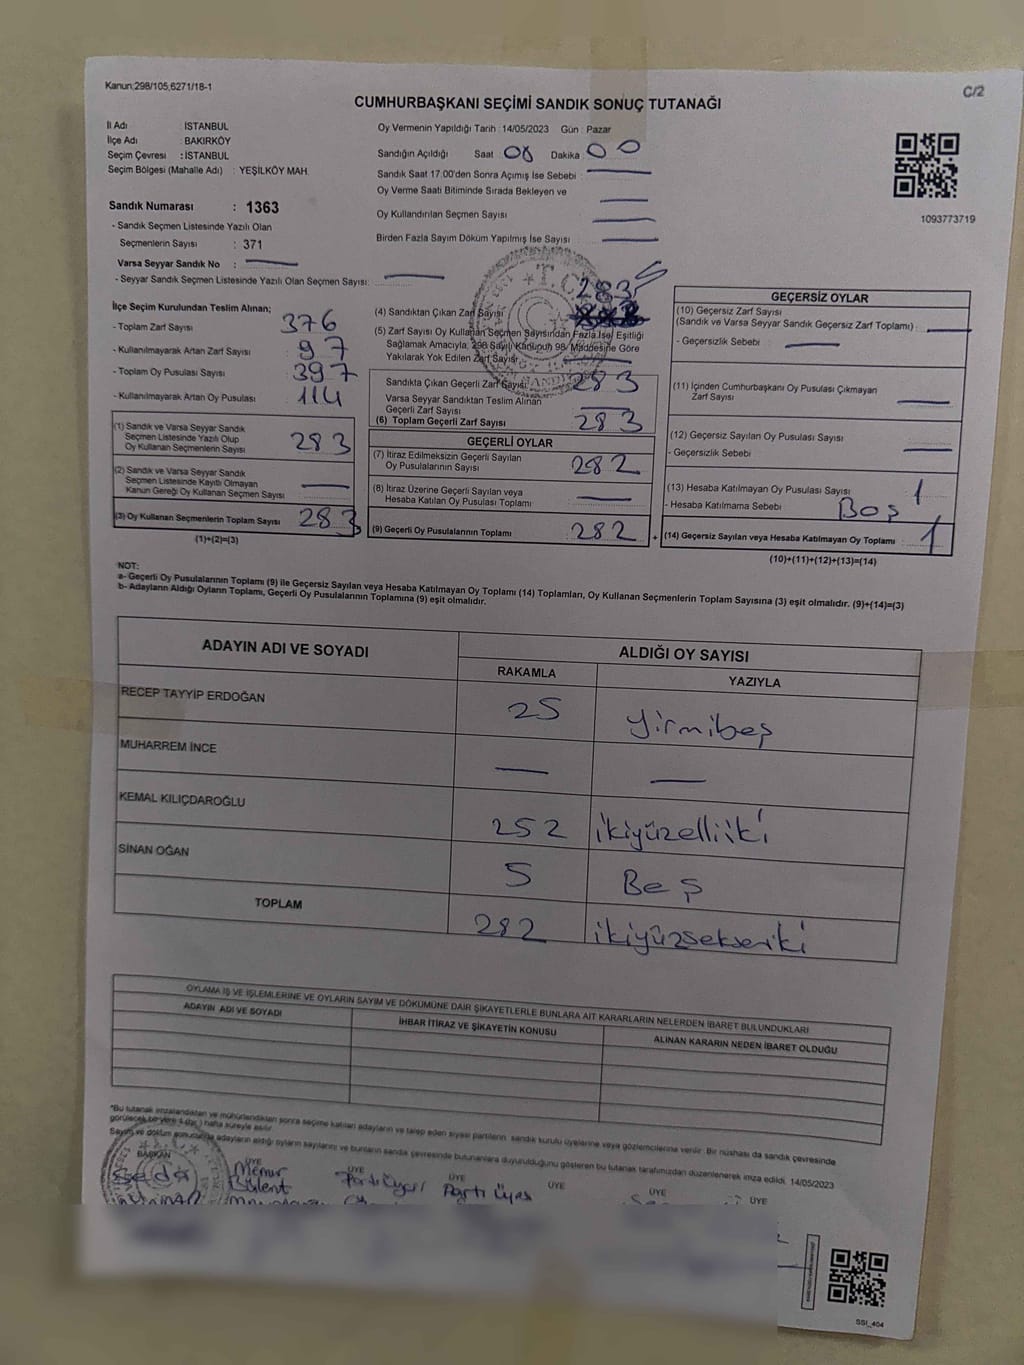 Kanun;298/105,6271/18-1
C/2
CUMHURBAŞKANI SEÇİMİ SANDIK SONUÇ TUTANAĞI
İl Adı : İSTANBUL
İlçe Adı : BAKIRKÖY
Seçim Çevresi : İSTANBUL
Seçim Bölgesi (Mahalle Adı) : YEŞİLKÖY MAH.
Sandık Numarası : 1363
- Sandık Seçmen Listesinde Yazılı Olan
Seçmenlerin Sayısı : 371
Varsa Seyyar Sandık No :
- Seyyar Sandık Seçmen Listesinde Yazılı Olan Seçmen Sayısı:
Oy Vermenin Yapıldığı Tarih : 14/05/2023 Gün : Pazar
Sandığın Açıldığı Saat : 08 Dakika : 00
Sandık Saat 17.00'den Sonra Açımış İse Sebebi :
Oy Verme Saati Bitiminde Sırada Bekleyen ve
Oy Kullandırılan Seçmen Sayısı
Birden Fazla Sayım Döküm Yapılmış İse Sayısı :
1093773719
İlçe Seçim Kurulundan Teslim Alınan;
- Toplam Zarf Sayısı : 376
- Kullanılmayarak Artan Zarf Sayısı : 97
- Toplam Oy Pusulası Sayısı : 397
- Kullanılmayarak Artan Oy Pusulası : 114
(1) Sandık ve Varsa Seyyar Sandık
Seçmen Listesinde Yazılı Olup
Oy Kullanan Seçmenlerin Sayısı 283
(2) Sandık ve Varsa Seyyar Sandık
Seçmen Listesinde Kayıtlı Olmayan
Kanun Gereği Oy Kullanan Seçmen Sayısı
(3) Oy Kullanan Seçmenlerin Toplam Sayısı 283
(1)+(2)=(3)
T.C.
283
(4) Sandıktan Çıkan Zarf Sayısı
(5) Zarf Sayısı Oy Kullanan Seçmen Sayısından Fazla İse, Eşitliği
Sağlamak Amacıyla, 298 Sayılı Kanunun 98. Maddesine Göre
Yakılarak Yok Edilen Zarf Sayısı
Sandıkta Çıkan Geçerli Zarf Sayısı: 283
Varsa Seyyar Sandıktan Teslim Alınan
Geçerli Zarf Sayısı
(6) Toplam Geçerli Zarf Sayısı 283
GEÇERLİ OYLAR
(7) İtiraz Edilmeksizin Geçerli Sayılan
Oy Pusulalarının Sayısı 282
(8) İtiraz Üzerine Geçerli Sayılan veya
Hesaba Katılan Oy Pusulası Toplamı
(9) Geçerli Oy Pusulalarının Toplamı 282 +
GEÇERSİZ OYLAR
(10) Geçersiz Zarf Sayısı
(Sandık ve Varsa Seyyar Sandık Geçersiz Zarf Toplamı) :
- Geçersizlik Sebebi :
(11) İçinden Cumhurbaşkanı Oy Pusulası Çıkmayan
Zarf Sayısı
(12) Geçersiz Sayılan Oy Pusulası Sayısı
- Geçersizlik Sebebi
(13) Hesaba Katılmayan Oy Pusulası Sayısı 1
- Hesaba Katılmama Sebebi : Boş
(14) Geçersiz Sayılan veya Hesaba Katılmayan Oy Toplamı 1
(10)+(11)+(12)+(13)=(14)
NOT:
a- Geçerli Oy Pusulalarının Toplamı (9) ile Geçersiz Sayılan veya Hesaba Katılmayan Oy Toplamı (14) Toplamları, Oy Kullanan Seçmenlerin Toplam Sayısına (3) eşit olmalıdır. (9)+(14)=(3)
b- Adayların Aldığı Oyların Toplamı, Geçerli Oy Pusulalarının Toplamına (9) eşit olmalıdır.
ADAYIN ADI VE SOYADI ALDIĞI OY SAYISI
RAKAMLA YAZIYLA
RECEP TAYYİP ERDOĞAN 25 Yirmibeş
MUHARREM İNCE
KEMAL KILIÇDAROĞLU 252 ikiyüzelliiki
SİNAN OĞAN 5 Beş
TOPLAM 282 ikiyüzsekseniki
OYLAMA İŞ VE İŞLEMLERİNE VE OYLARIN SAYIM VE DÖKÜMÜNE DAİR ŞİKAYETLERLE BUNLARA AİT KARARLARIN NELERDEN İBARET BULUNDUKLARI
ADAYIN ADI VE SOYADI İHBAR İTİRAZ VE ŞİKAYETİN KONUSU ALINAN KARARIN NEDEN İBARET OLDUĞU
*Bu tutanak imzalandıktan ve mühürlendikten sonra seçime katılan adayların ve talep eden siyasi partilerin sandık kurulu üyelerine veya gözlemcilerine verilir. Bir nüshası da sandık çevresinde
görülecek bir yere 1 (bir) hafta süreyle asılır.
Sayım ve döküm sonucunda adayların aldığı oyların sayılarını ve bunların sandık çevresinde bulunanlara duyurulduğunu gösteren bu tutanak tarafımızdan düzenlenerek imza edildi. 14/05/2023
BAŞKAN ÜYE ÜYE ÜYE ÜYE ÜYE ÜYE
Seda Memur Parti Üyesi Parti Üyesi
Bülent
SSI_404